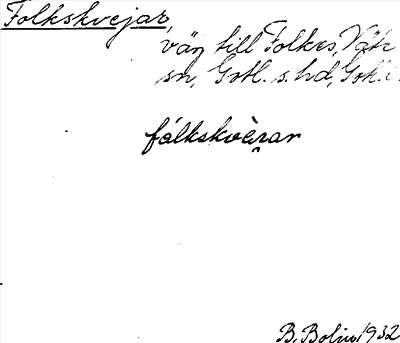 Folkskvejar,
väg till Folkes, Väte
sn, Gotl. s. hd, Gotl.
fålkskvèrar
B. Bolin 1932